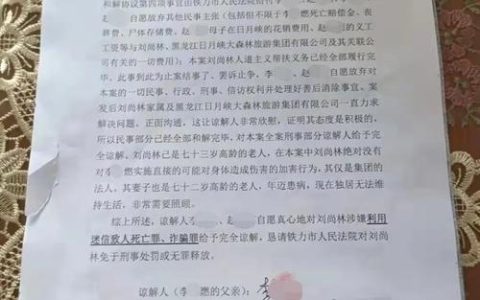 和解协议第四项事宜由铁力市人民法院给付李
恩愿放弃其他民事主张(包括但不限于李 燃死亡赔偿金、丧
葬费、尸体存储费、赵 母子在日月峡的花销费用、赵 的义工
工资等与刘尚林、黑龙江日月峡大森林旅游集团有限公司及其关联公
司有关的一切费用);本案刘尚林人道主义帮扶义务已经全部履行完
毕,此事到此为止案结事了、罢诉止争,李 、赵 自愿放弃对
本案的一切民事、行政、刑事、信访权利并处理好善后消除事宜。案
发后刘尚林家属及黑龙江日月峡大森林旅游集团有限公司一直力求
解决问题,正面沟通,这让谅解人非常欣慰,证明其态度是积极的,
所以民事部分已经全部和解完毕,对本案全案刑事部分谅解人给予完
全谅解,刘尚林已是七十三岁高龄的老人,在本案中刘尚林绝对没有
对 燃实施直接的可能对身体边成伤害的加害行为,其仅是集团的
法人,其妻子也是七十二岁高龄的老人,年迈患病,现在独居无法维
持生活,非常需要照顾。
综上所述,谅解人李 、赵 自愿真心地对刘尚林涉嫌利用
迷信致人死亡罪、诈骗罪给予完全谅解,恳请铁力市人民法院对刘尚
林免于刑事处罚或无罪释放。
谅解人(李 燃的父亲):李